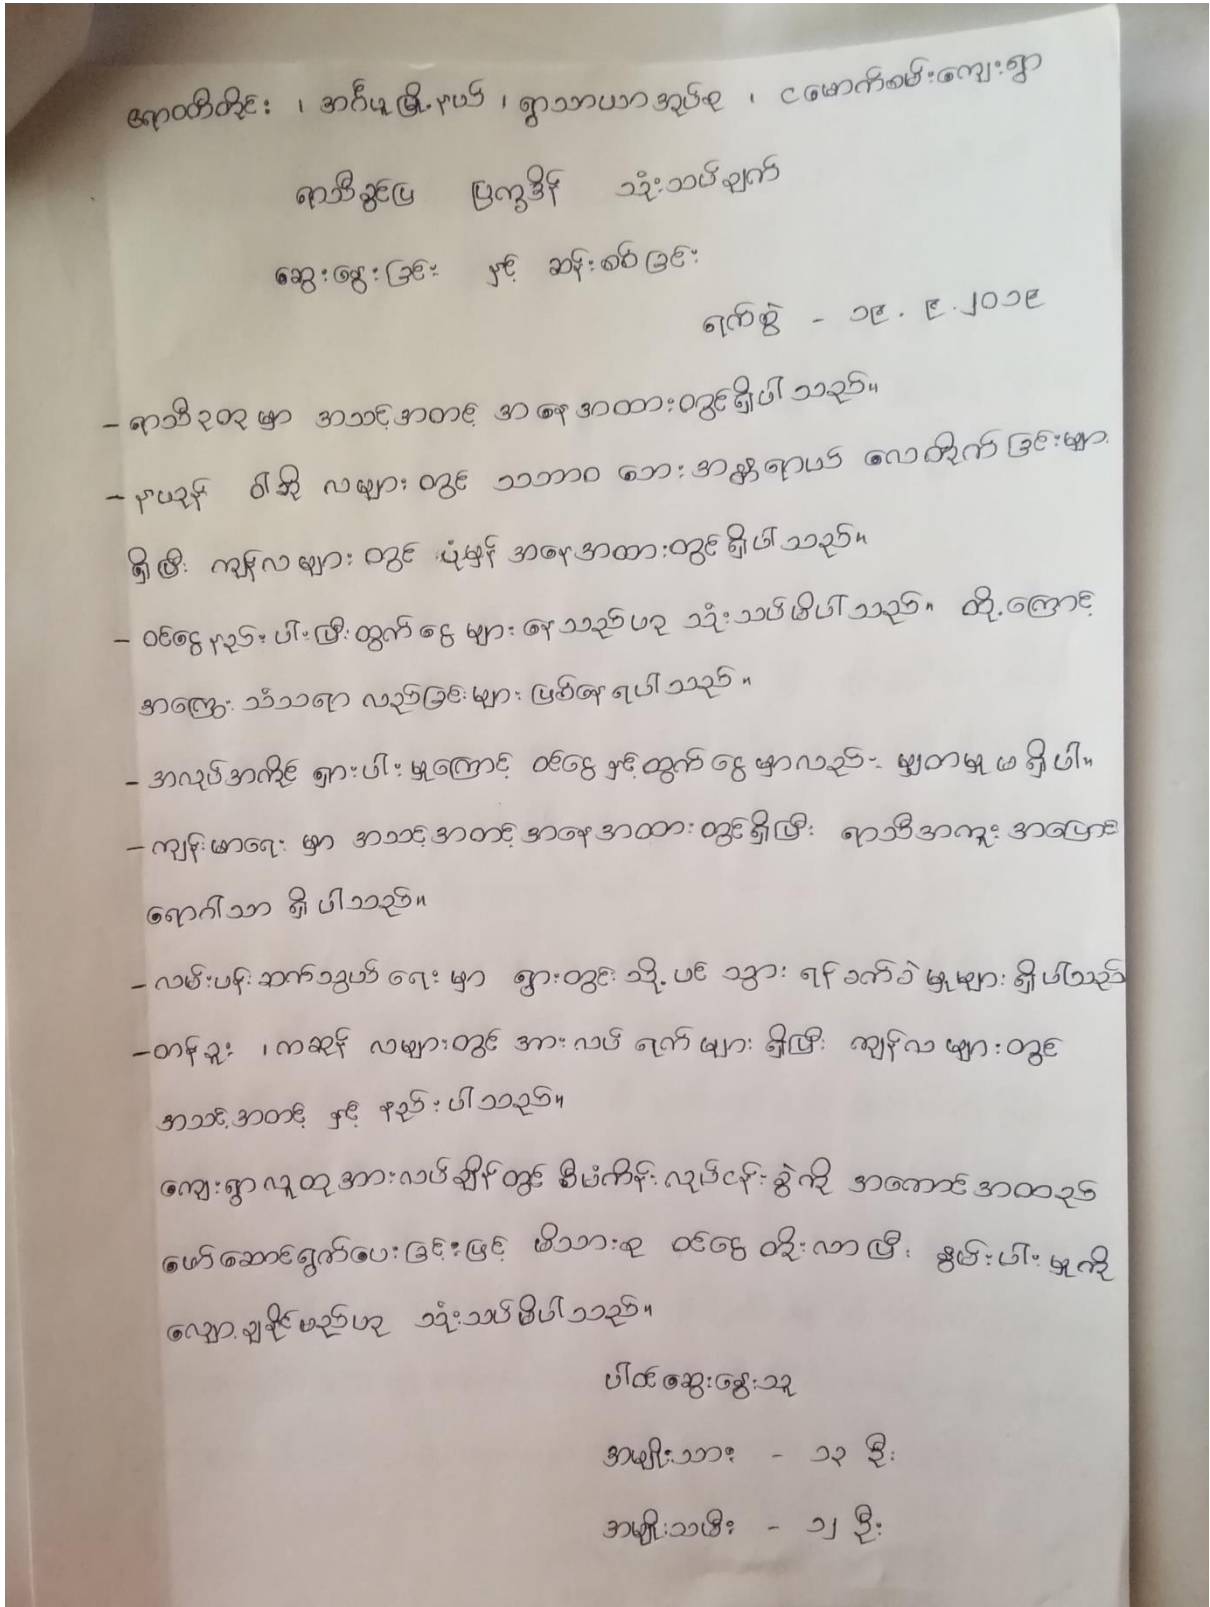 ဧရာဝတီတိုင်း ၊ အင်္ဂပူမြို့နယ် ၊ ရွာသာယာအုပ်စု ၊ ငမောက်စမ်းကျေးရွာ
ရာသီခွင်ပြ ပြက္ခဒိန် သုံးသပ်ချက်
ဆွေးနွေးခြင်း နှင့် ဆန်းစစ်ခြင်း
ရက်စွဲ - ၁၉.၉.၂၀၁၉
- ရာသီဥတုမှာ အသင့်အတင့် အနေအထားတွင်ရှိပါသည်။
- နယုန် ဝါဆို လများတွင် သဘာဝ ဘေးအန္တရာယ် လေတိုက်ခြင်းများ
ရှိပြီး ကျန်လများတွင် ပုံမှန် အနေအထားတွင်ရှိပါသည်။
- ဝင်ငွေနည်းပါးပြီးထွက်ငွေများနေသည်ဟု သုံးသပ်မိပါသည်။ ထို့ကြောင့်
အကြွေးသံသရာ လည်ခြင်းများဖြစ်နေရပါသည်။
- အလုပ်အကိုင် ရှားပါးမှုကြောင့် ဝင်ငွေနှင့်ထွက်ငွေမှာလည်း မျှတမှုမရှိပါ။
- ကျန်းမာရေးမှာ အသင့်အတင့်အနေအထားတွင်ရှိပြီး ရာသီအကူးအပြောင်း
ရောဂါသာ ရှိပါသည်။
- လမ်းပန်းဆက်သွယ်ရေးမှာ ရွားတွင်းသို့ပင် သွားရန်ခက်ခဲမှုများရှိပါသည်
- တန်ခူး ၊ ကဆုန် လများတွင် အားလပ်ရက်များရှိပြီး ကျန်လများတွင်
အသင့်အတင့် နှင့် နည်းပါသည်။
ကျေးရွာလူထုအားလပ်ချိန်တွင် စီမံကိန်းလုပ်ငန်းခွဲကို အကောင်အထည်
ဖော်ဆောင်ရွက်ပေးခြင်းဖြင့် မိသားစု ဝင်ငွေတိုးလာပြီး နွမ်းပါးမှုကို
လျော့ချနိုင်မည်ဟု သုံးသပ်မိပါသည်။
ပါဝင်ဆွေးနွေးသူ
အမျိုးသား - ၁၃ ဦး
အမျိုးသမီး - ၁၂ ဦး